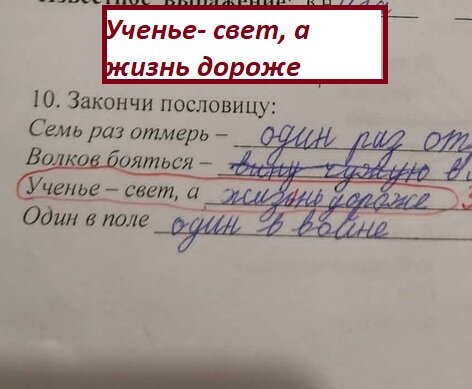 Ученье- свет, а
жизнь дороже
10. Закончи пословицу:
Семь раз отмерь – один раз от
Волков бояться – вину чужую
Ученье – свет, а жизнь дороже
Один в поле один в войне